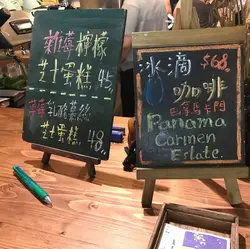 新莓檸檬
芝士蛋糕 45.
草莓乳酪慕絲
芝士蛋糕 48.
冰滴 $68.
咖啡
巴拿馬卡門
Panama
Carmen
Estate.